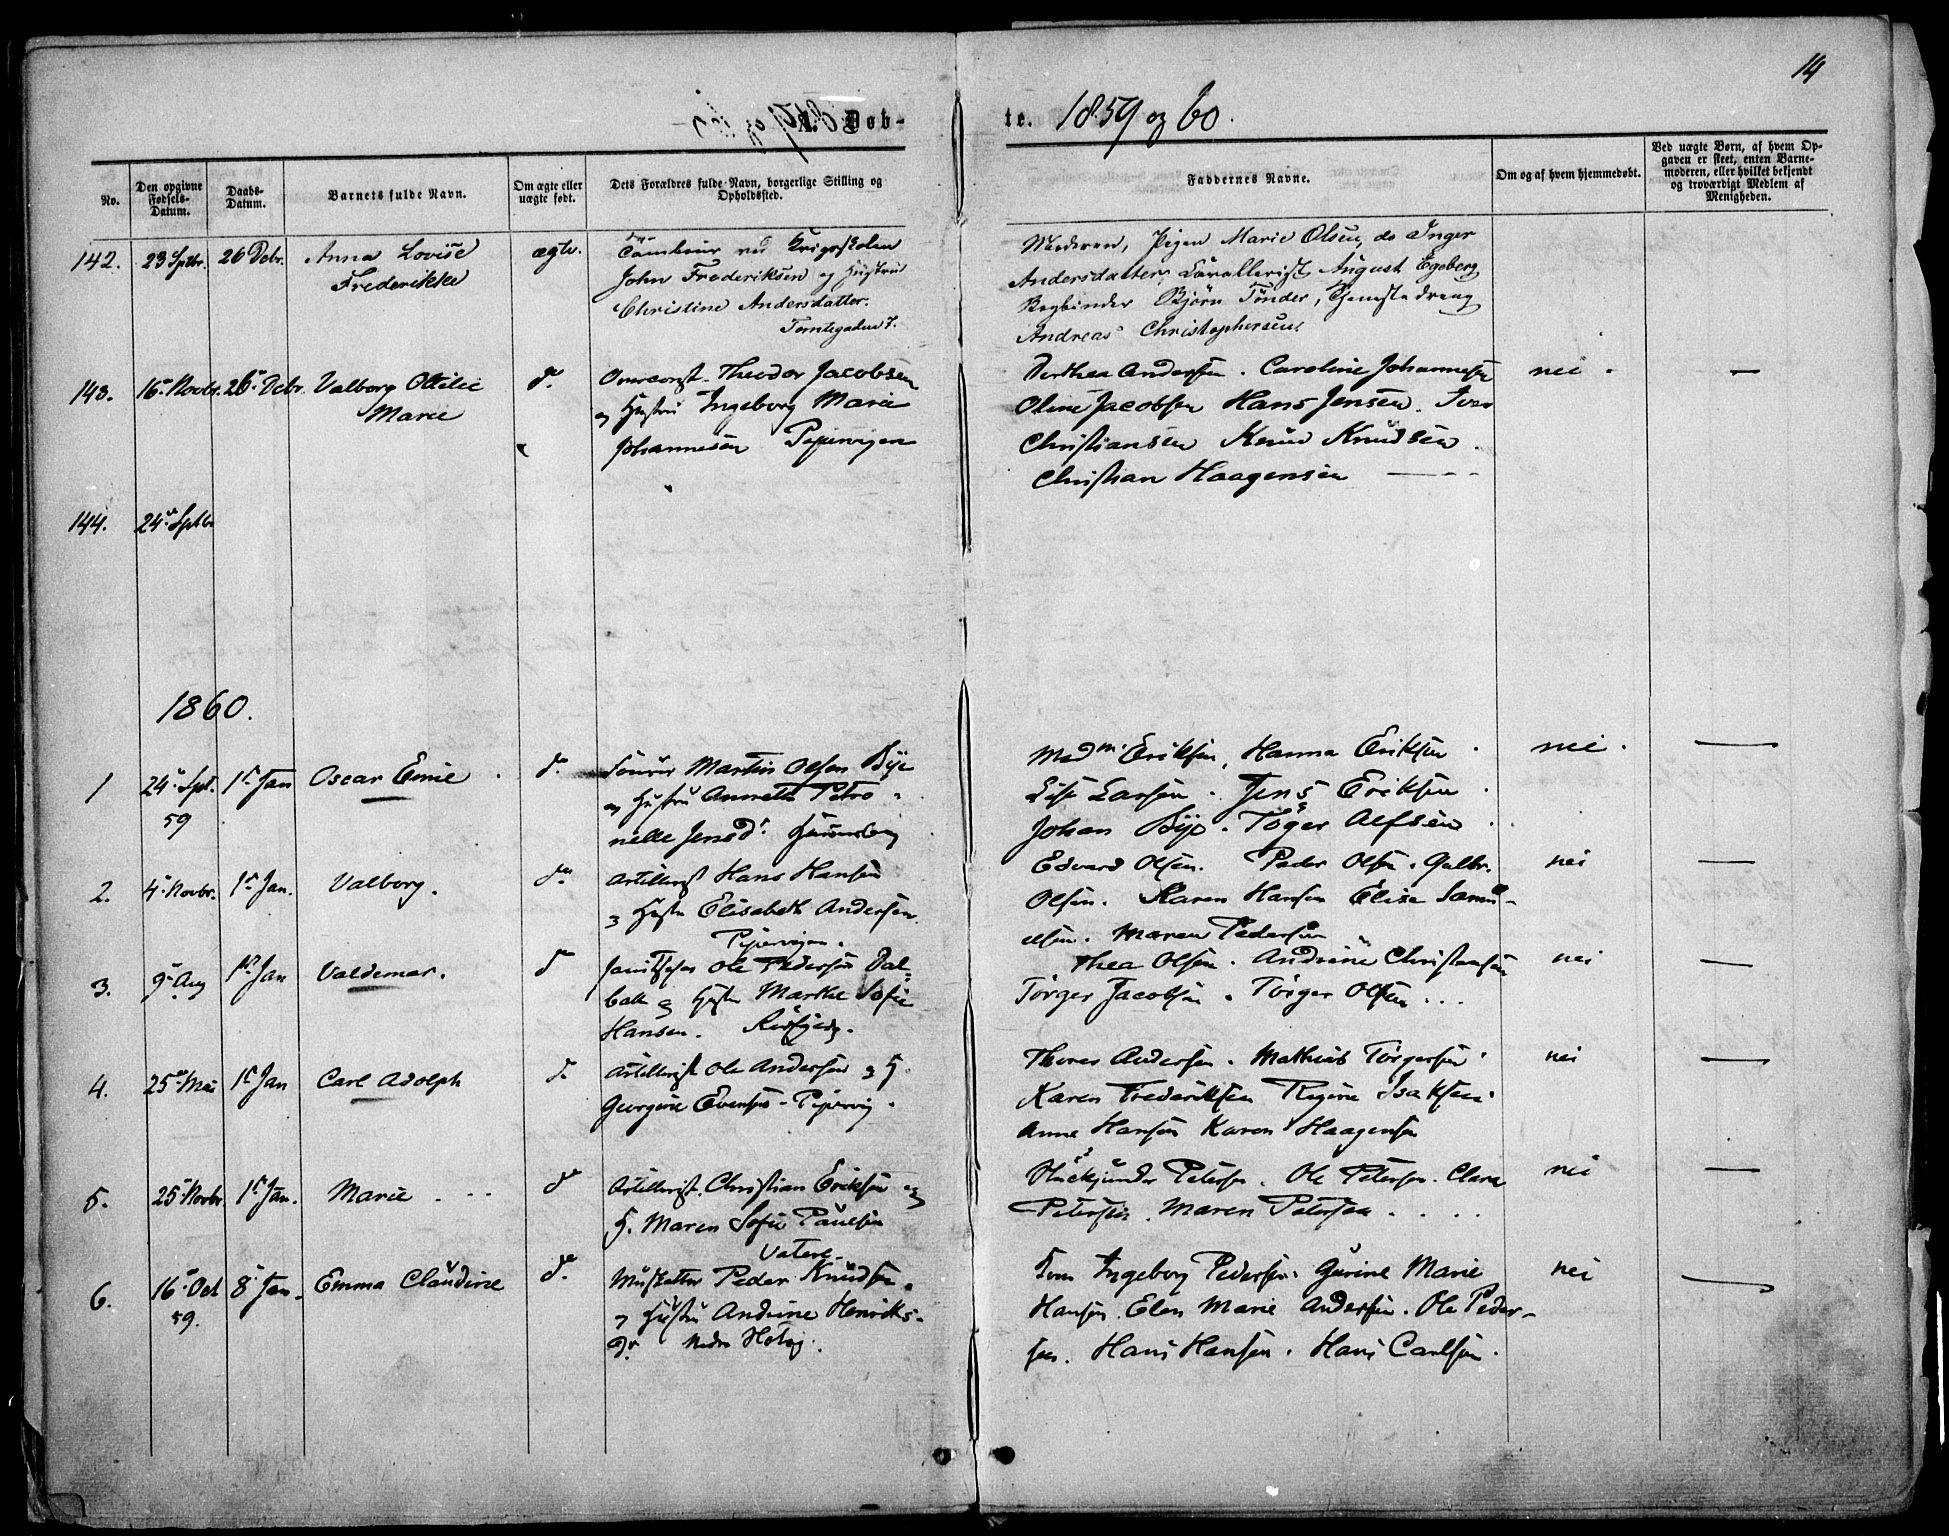 14
A. Døb-
te. 1859 og 60.
No.
Den opgivne Fødsels-Datum.
Daabs-Datum.
Barnets fulde Navn.
Om ægte eller uægte født.
Dets Forældres fulde Navn, borgerlige Stilling og Opholdssted.
Faddernes Navne.
Om og af hvem hjemmedøbt.
Ved uægte Børn, af hvem Op-
gaven er skeet, enten Barne-
moderen, eller hvilket bekjendt
og troværdigt Medlem af
Menigheden.
142. 23 Sptbr. 26 Debr. Anna Lovise
Frederikke
ægte.
Tambour ved Krigsskolen
John Frederiksen og Hustru
Christine Andersdatter.
Tomtegaden 7.
Moderen, Pigen Marie Olsen, do Inger
Andersdatter, Cavallerist August Egeberg
Bogbinder Bjørn Tønder, Tjenestedreng
Andreas Christophersen
143. 16 Novbr. 26 Debr. Valborg Ottilie
Marie
d.
Overconst. Theodor Jacobsen
og Hustru Ingeborg Marie
Johannesen Pipervigen
Dorthea Andersen. Caroline Johannesen
Oline Jacobsen Hans Jensen. Iver
Christiansen Knud Knudsen.
Christian Haagensen
nei. —
144. 24 Sptbr
1860.
1 24 Spt. 59 1 Jan Oscar Emil. d.
Martin Olsen Bye
og Hustru Annette Petro-
nelle Jensd.
Mad Eriksen, Hanna Eriksen.
Lise Larsen. Jens Eriksen.
Johan Bye. Tøger Alfsen.
nei. —
2. 4 Novbr. 1 Jan. Valborg. do
Artillerist Hans Hansen
og Hustru Elisabeth Andersen.
Pipervigen.
Edvard Olsen. Peder Olsen. Gulbr.
Olsen. Karen Hansen Elise Samu-
elsen. Maren Pedersen
nei —
3. 9 Aug 1 Jan Valdemar. d
Ole Pedersen Dal-
bak og Hustru Marthe Sofie
Hansen.
Thea Olsen. Andrine Christensen
Tørger Jacobsen. Tørger Olsen...
nei —
4. 25 Mai 1 Jan Carl Adolph d.
Artillerist Ole Andersen og H.
Georgine Evensen - Pipervig.
Thores Andersen. Mathias Tørgersen.
Karen Frederiksen Regine Isaksen.
Anne Hansen Karen Haagensen
nei —
5. 25 Novbr 1 Jan. Marie d
Artillerist. Christian Eriksen og
H. Maren Sofie Paulsen
Petersen. Ole Petersen. Clara
Petersen. Maren Petersen....
nei —
6. 16 Oct 59. 8 Jan. Emma Claudine d.
Musketter Peder Knudsen
og Hustru Andrine Henriks-
dr.
Ingeborg Pedersen. Gurine Marie
Hansen. Elen Marie Andersen. Ole Peder-
sen. Hans Hansen. Hans Carlsen.
nei —